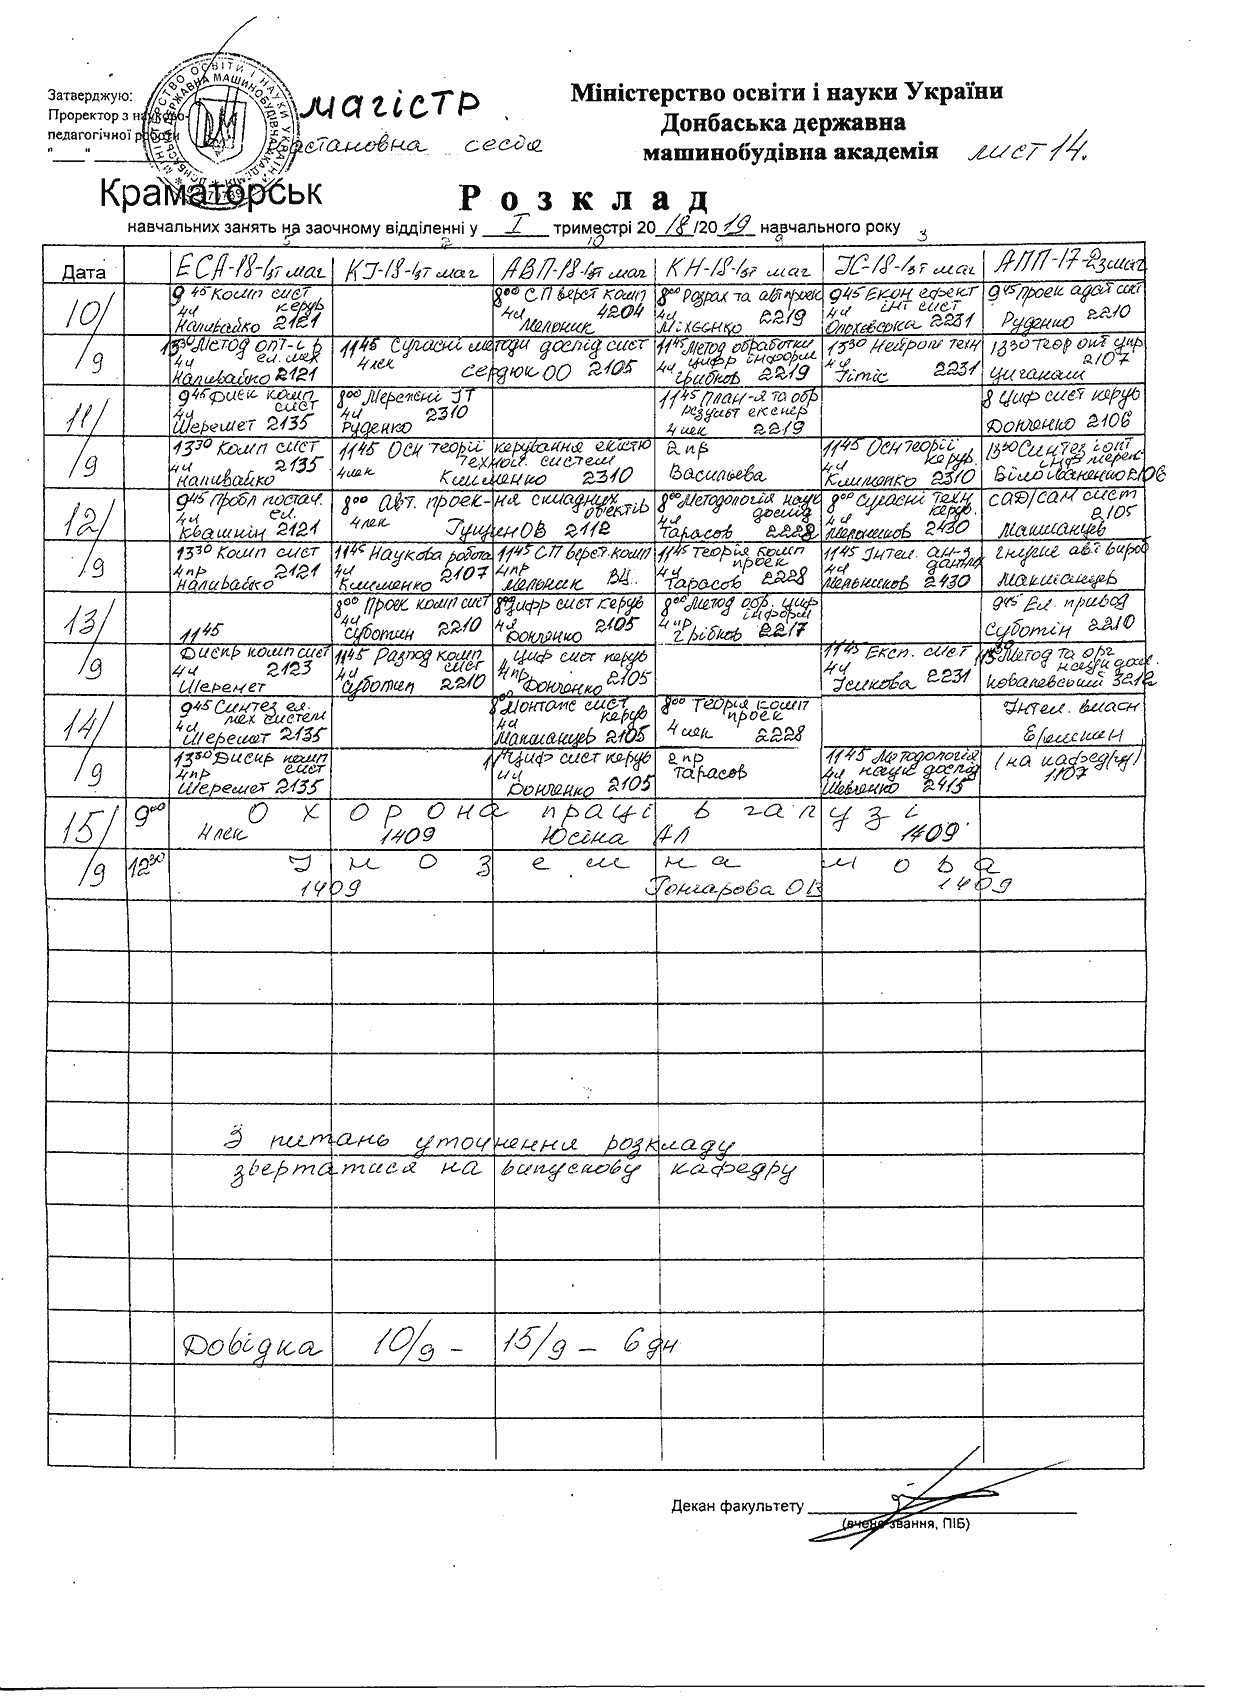 Затверджую:
Проректор з науково-
педагогічної роботи
магістр
установна сесія
Міністерство освіти і науки України
Донбаська державна
машинобудівна академія
лист 14.
Краматорськ
Розклад
навчальних занять на заочному відділенні у I триместрі 2018/2019 навчального року
Дата ЕСА-18-1зт маг КІ-18-1зт маг АВП-18-1зт маг КН-18-1зт маг ІС-18-1зт маг АПП-17-2з маг
10/9
9 45 Комп сист керув
4ч Наливайко 2121
8 00 СП верст комп
4ч 4204
Мельник
8 00 Розрах та авт проек
4ч 2219
9 45 Екон ефект
4ч інт сист
2231
9 45 Проек адапт сист
Руденко 2210
13 30 Метод опт-ї р
4ч ел. мех
Наливайко 2121
11 45 Сучасні методи дослід сист
4лек Сердюк ОО 2105
11 45 Метод обработки
цифр інформ
4ч Грибков 2219
13 30 Нейрон техн
4ч Гітіс 2231
13 30 Теор опт упр
2107
11/9
9 45 Диск комп сист
4ч Шеремет 2135
8 00 Мережні ІТ
4ч 2310
Руденко
11 45 План-я та обр
результ експер
4 лек 2219
8 Циф сист керув
Донченко 2106
13 30 Комп сист
4ч 2135
Наливайко
11 45 Осн теорії керування екістю
технол. систем
4лек Клименко 2310
2 пр
Васильева
11 45 Осн теорії керув.
4ч Клименко 2310
13 30 Синтез і опт
інф мереж
12/9
9 45 Пробл постач. ел.
4ч Квашнін 2121
8 00 Авт. проек-ня складних об'єктів
4лек Гущин ОВ 2112
8 00 Методологія наук дослід
4ч Тарасов 2228
8 00 Сучасні техн керув.
4ч Мельников 2430
САД/САМ сист
2105
Макшанцев
13 30 Комп сист
4пр 2121
Наливайко
11 45 Наукова робота
4ч Клименко 2107
11 45 СП верст. комп
4пр Мельник ВЦ.
11 45 Теорія комп проек
4ч Тарасов 2228
11 45 Інтел. ан-з даних
4ч Мельников 2430
Гнучке авт вироб
Макшанцев
13/9
8 00 Проек комп сист
4ч Суботин 2210
8 00 Цифр сист керув
4л Донченко 2105
8 00 Метод обр. циф інформ
4пр Грібков 2217
9 45 Ел. привод
Суботін 2210
11 45
Дискр комп сист
4ч 2123
Шеремет
11 45 Разпод комп сист
4ч Суботин 2210
Циф сист керув
4пр Донченко 2105
11 45 Експ. сист
4ч Гєикова 2231
Метод та орг
наук дослі.
Ковалевський 3212
14/9
9 45 Синтез ел.
мех систем
4ч Шеремет 2135
8 00 Монтаж сист керув
4ч Макшанцев 2105
8 00 Теорія комп проек
4 лек 2228
Інтел. власн
Еремкин
13 30 Дискр комп сист
4пр Шеремет 2135
Циф сист керув
4ч Донченко 2105
2 пр
Тарасов
11 45 Методологія
4ч наук дослід
Шевченко 2415
(на кафедру)
1107
15/9 9 00 Охорона праці в галузі
4 лек 1409 Юсіна АЛ 1409
12 30 Іноземна мова
1409 Гончарова ОВ 1409
З питань уточнення розкладу
звертатися на випускову кафедру
Довідка 10/9 – 15/9 – 6 дн
Декан факультету
(вчене звання, ПІБ)